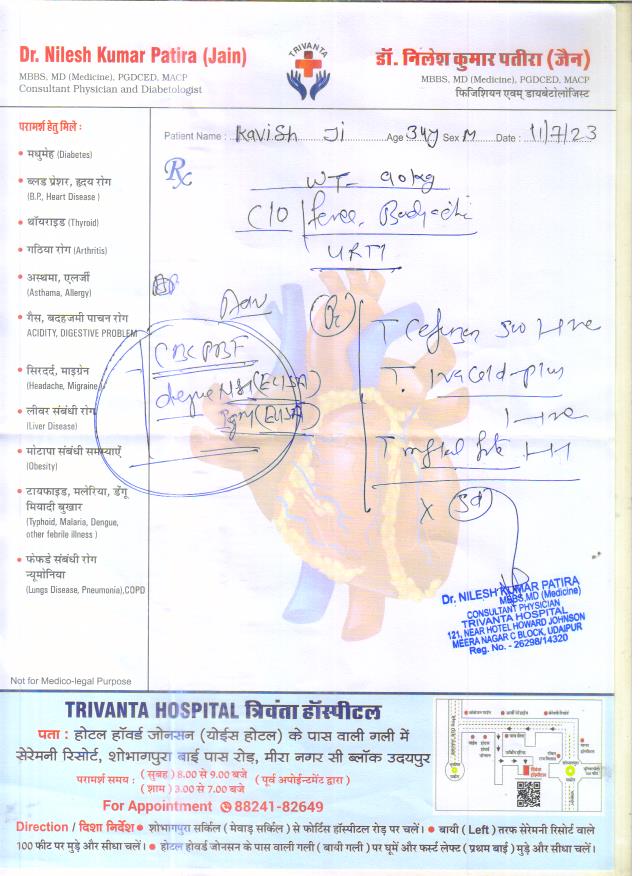 Dr. Nilesh Kumar Patira (Jain)
MBBS, MD (Medicine), PGDCED, MACP
Consultant Physician and Diabetologist
TRIVANTA
डॉ. निलेश कुमार पतीरा (जैन)
MBBS, MD (Medicine), PGDCED, MACP
फिजिशियन एवम् डायबेटोलॉजिस्ट
परामर्श हेतु मिले :
• मधुमेह (Diabetes)
• ब्लड प्रेशर, हृदय रोग
(B.P., Heart Disease )
• थॉयराइड (Thyroid)
• गठिया रोग (Arthritis)
• अस्थमा, एलर्जी
(Asthama, Allergy)
• गैस, बदहजमी पाचन रोग
ACIDITY, DIGESTIVE PROBLEM
• सिरदर्द, माइग्रेन
(Headache, Migraine)
• लीवर संबंधी रोग
(Liver Disease)
• मोटापा संबंधी समस्याऐं
(Obesity)
• टायफाइड, मलेरिया, डेंगू
मियादी बुखार
(Typhoid, Malaria, Dengue,
other febrile illness )
• फेफडे संबंधी रोग
न्यूमोनिया
(Lungs Disease, Pneumonia),COPD
Not for Medico-legal Purpose
Patient Name : Kavish Ji Age 34y Sex M Date : 11/7/23
Rx
WT- 90kg
C/O fever, Bodyache
URTI
Adv
CBC PBF
dengue NS1(ELISA)
IgM(ELISA)
Rx
T
T.
T
x 5d
Dr. NILESH KUMAR PATIRA
MBBS,MD (Medicine)
CONSULTANT PHYSICIAN
TRIVANTA HOSPITAL
121, NEAR HOTEL HOWARD JOHNSON
MEERA NAGAR C BLOCK, UDAIPUR
Reg. No. - 26298/14320
TRIVANTA HOSPITAL त्रिवंता हॉस्पीटल
पता : होटल हॉवर्ड जोनसन (योईस होटल) के पास वाली गली में
सेरेमनी रिसोर्ट, शोभागपुरा बाई पास रोड़, मीरा नगर सी ब्लॉक उदयपुर
परामर्श समय : ( सुबह ) 8.00 से 9.00 बजे ( पूर्व अपोईन्टमेंट द्वारा )
( शाम ) 3.00 से 7.00 बजे
For Appointment 88241-82649
Direction / दिशा निर्देश • शोभागपुरा सर्किल ( मेवाड़ सर्किल ) से फोर्टिस हॉस्पीटल रोड़ पर चलें। • बायी ( Left ) तरफ सेरेमनी रिसोर्ट वाले
100 फीट पर मुड़े और सीधा चलें। • होटल होवर्ड जोनसन के पास वाली गली ( बायी गली ) पर घूमें और फर्स्ट लेफ्ट ( प्रथम बाई ) मुड़े और सीधा चलें।